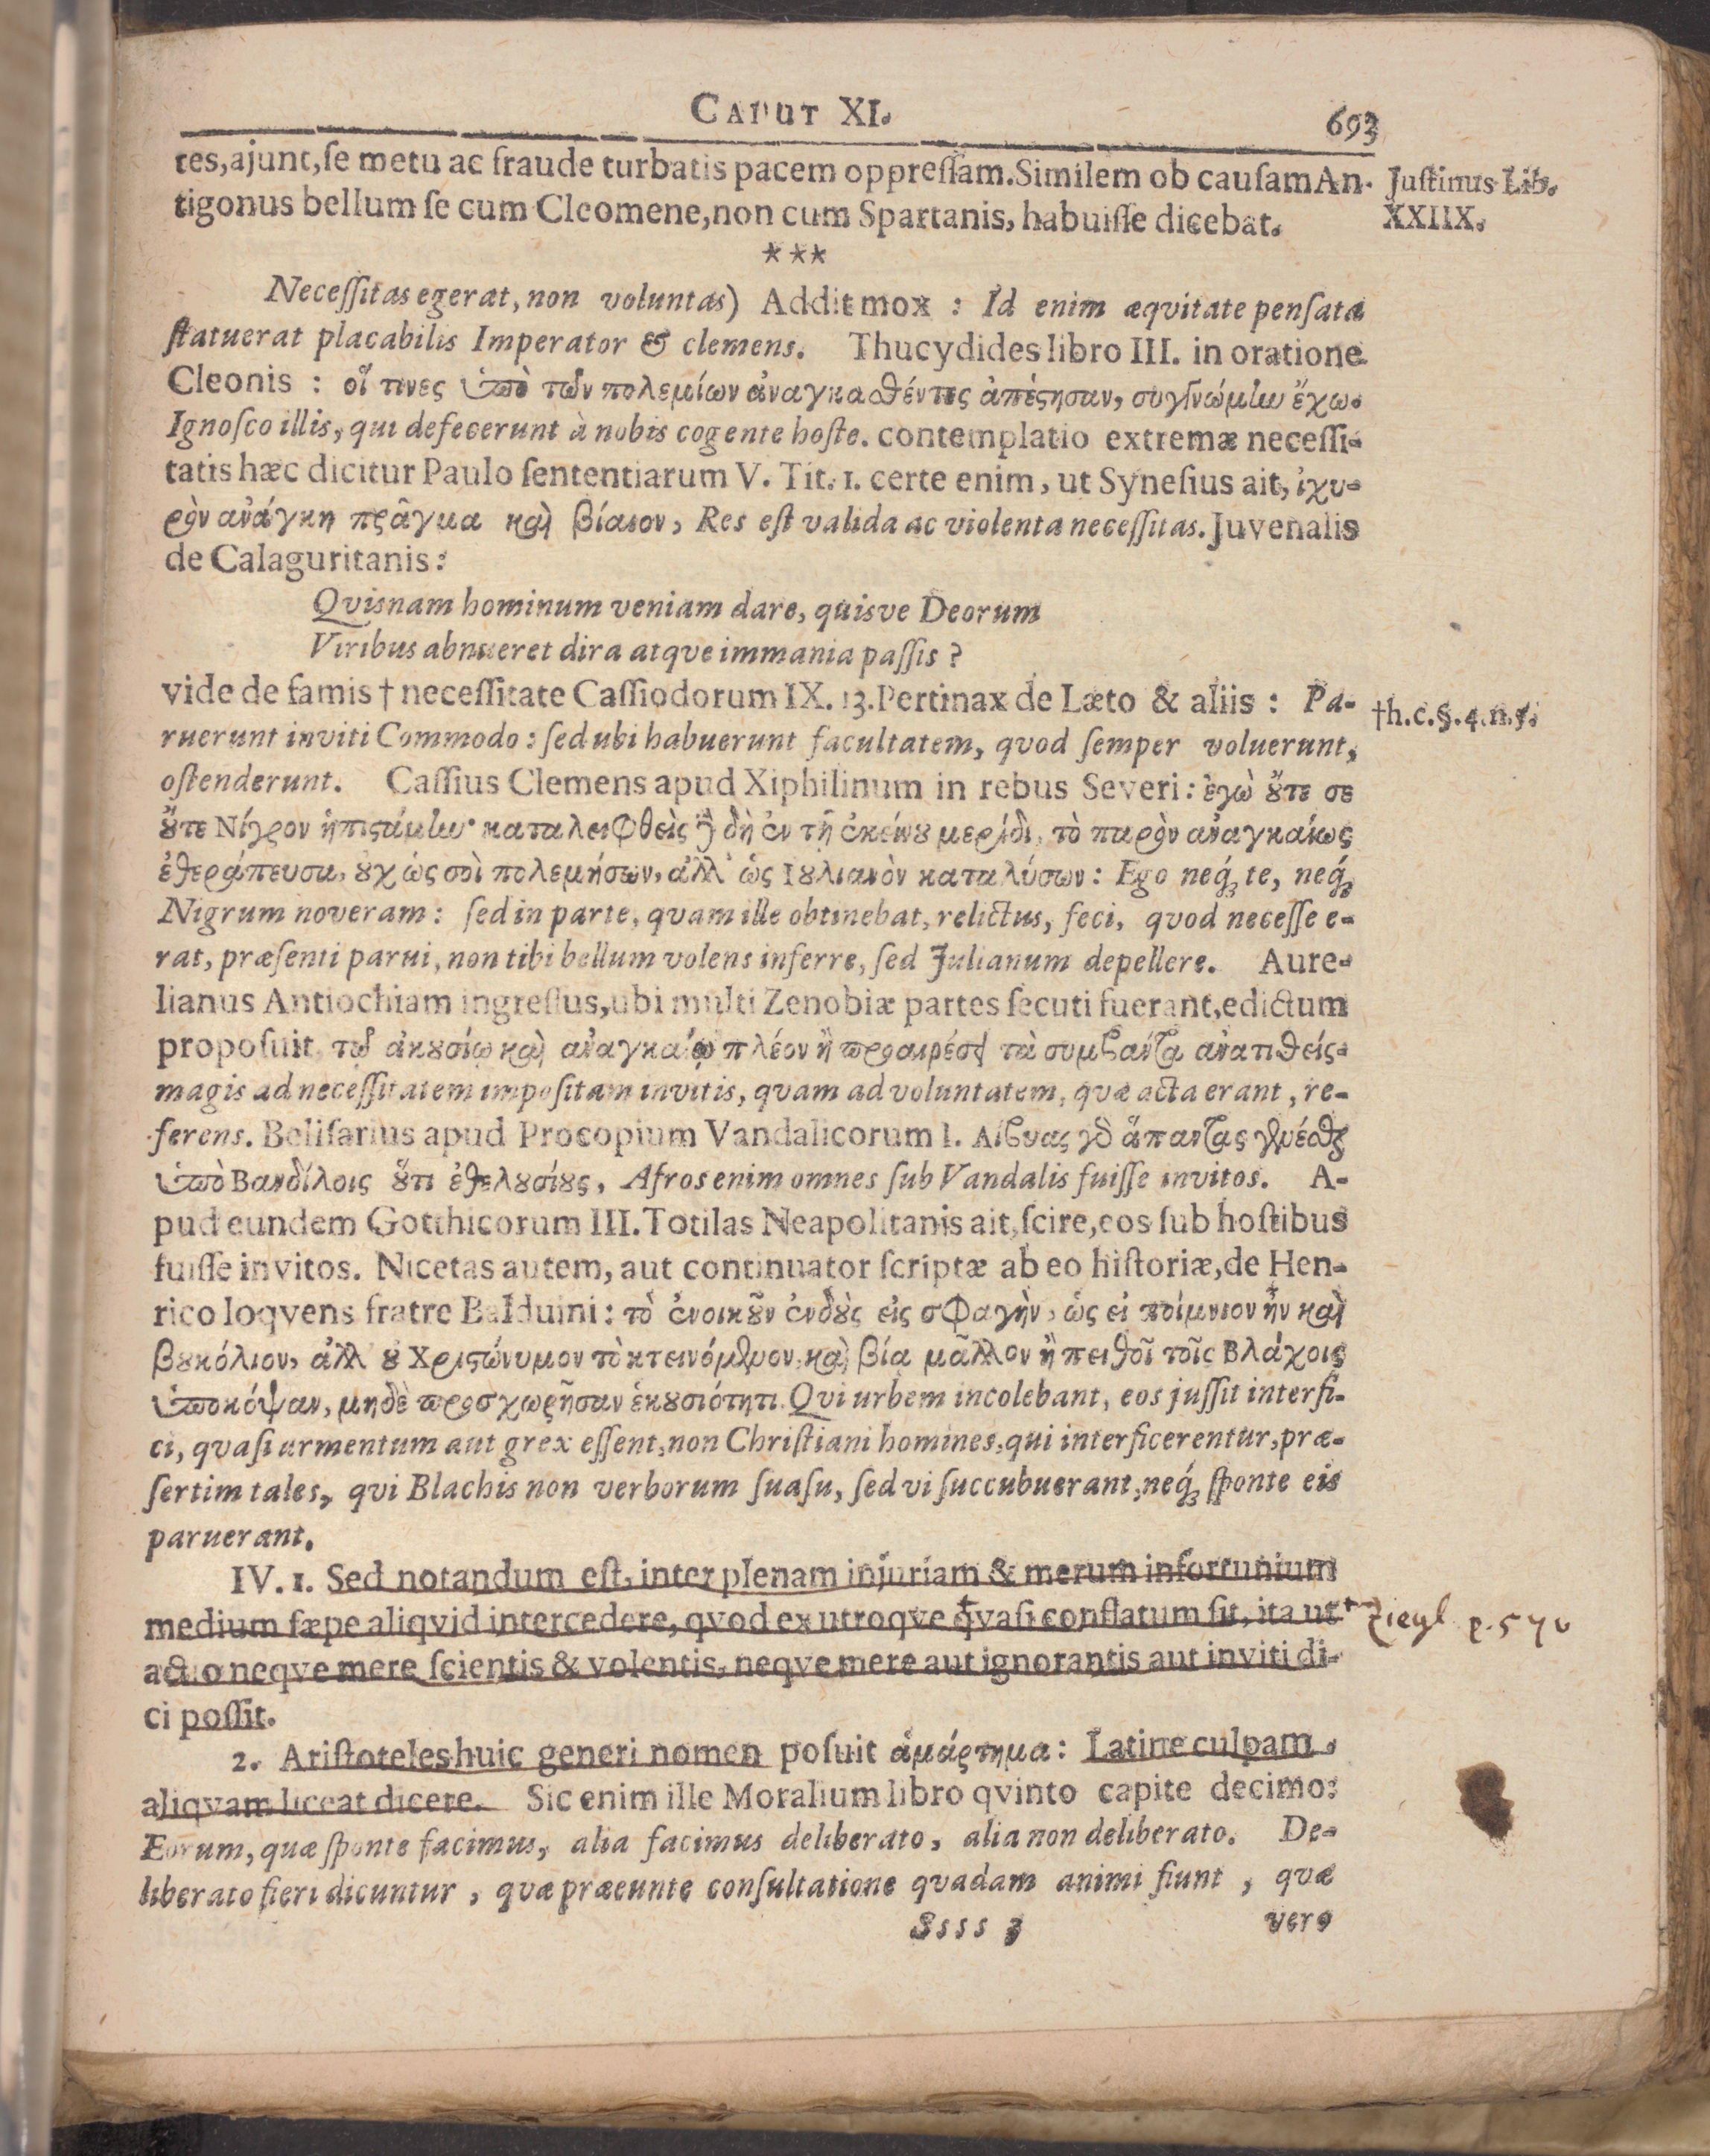 CAPUT XI. 693
tes, ajunt, ſe metu ac fraude turbatis pacem oppreſſam. Similem ob cauſam An-
tigonus bellum ſe cum Cleomene, non cum Spartanis, habuiſſe dicebat.
Juſtinus Lib.
XXIIX.
***
Neceſſitas egerat, non voluntas) Addit mox : Id enim æqvitate penſata
ſtatuerat placabilis Imperator & clemens. Thucydides libro III. in oratione
Cleonis : οἵ τινες ὑπὸ τῶν πολεμίων ἀναγκαθέντες ἀπέϛησαν, συγγνώμην ἔχω.
Ignoſco illis, qui defecerunt à nobis cogente hoſte. contemplatio extremæ neceſſi-
tatis hæc dicitur Paulo ſententiarum V. Tit. 1. certe enim, ut Syneſius ait, ἰχυ-
ρὸν ἀνάγκη πρᾶγμα καὶ βίαιον, Res eſt valida ac violenta neceſſitas. Juvenalis
de Calaguritanis:
Qvisnam hominum veniam dare, quisve Deorum
Viribus abnueret dira atqve immania paſſis ?
vide de famis † neceſſitate Caſſiodorum IX. 13. Pertinax de Læto & aliis : Pa-
†h.c.§.4.n.
ruerunt inviti Commodo : ſed ubi habuerunt facultatem, qvod ſemper voluerunt,
oſtenderunt. Caſſius Clemens apud Xiphilinum in rebus Severi: ἐγὼ ȣ̓́τε σε
ȣ̓́τε Νίγρον ἠπιϛάμην· καταλειφθεὶς ἢ δὴ ἐν τῇ ἐκείνȣ μερίδι, τὸ παρὸν ἀναγκαίως
ἐθεράπευσα, ȣ̓χ ὡς σοὶ πολεμήσων, ἀλλ᾽ ὡς Ιȣλιανὸν καταλύσων: Ego neq́ꝫ te, neq́ꝫ
Nigrum noveram: ſed in parte, quam ille obtinebat, relictus, feci, qvod neceſſe e-
rat, præſenti parui, non tibi bellum volens inferre, ſed Julianum depellere. Aure-
lianus Antiochiam ingreſſus, ubi multi Zenobiæ partes ſecuti fuerant, edictum
propoſuit, τῷ ἀκȣσίῳ καὶ ἀναγκαίῳ πλέον ἢ προαιρέσει τὰ συμβάντα ἀνατιθείς-
magis ad neceſſitatem impoſitam invitis, quam ad voluntatem, qvæ acta erant, re-
ferens. Beliſarius apud Procopium Vandalicorum l. Λίβυας γὸ ἅπαντας γενέσθαι
ὑπὸ Βανδίλοις ȣ̓́τι ἐθελȣσίȣς, Afros enim omnes ſub Vandalis fuiſſe invitos. A-
pud eundem Gotthicorum III. Totilas Neapolitanis ait, ſcire, eos ſub hoſtibus
fuiſſe invitos. Nicetas autem, aut continuator ſcriptæ ab eo hiſtoriæ, de Hen-
rico loqvens fratre Balduini: τὸ ἐνοικȣ͂ν ἐνδȣ̀ς εἰς σφαγὴν, ὡς εἰ ποίμνιον ἦν καὶ
βȣκόλιον, ἀλλ᾽ ȣ̓ Χριϛώνυμον τὸ κτεινόμενον, καὶ βία μᾶλλον ἢ πειθοῖ τοῖς Βλάχοις
ὑποκόψαν, μηδὲ προσχωρῆσαν ἑκȣσιότητι. Qvi urbem incolebant, eos juſſit interfi-
ci, quaſi armentum aut grex eſſent, non Chriſtiani homines, qui interficerentur, præ-
ſertim tales, qvi Blachis non verborum ſuaſu, ſed vi ſuccubuerant, neq́ꝫ ſponte eis
paruerant.
IV. 1. Sed notandum eſt, inter plenam injuriam & merum infortunium
medium ſæpe aliqvid intercedere, qvod ex utroqve qvaſi conflatum ſit, ita ut
Ziegl p. 570
actio neqve mere ſcientis & volentis, neqve mere aut ignorantis aut inviti di-
ci poſſit.
2. Ariſtoteles huic generi nomen poſuit ἁμάρτημα: Latine culpam
aliqvam liceat dicere. Sic enim ille Moralium libro qvinto capite decimo:
Eorum, quæ ſponte facimus, alia facimus deliberato, alia non deliberato. De-
liberato fieri dicuntur, qvæ præeunte conſultatione qvadam animi fiunt, qvæ
Ssss 3 vero